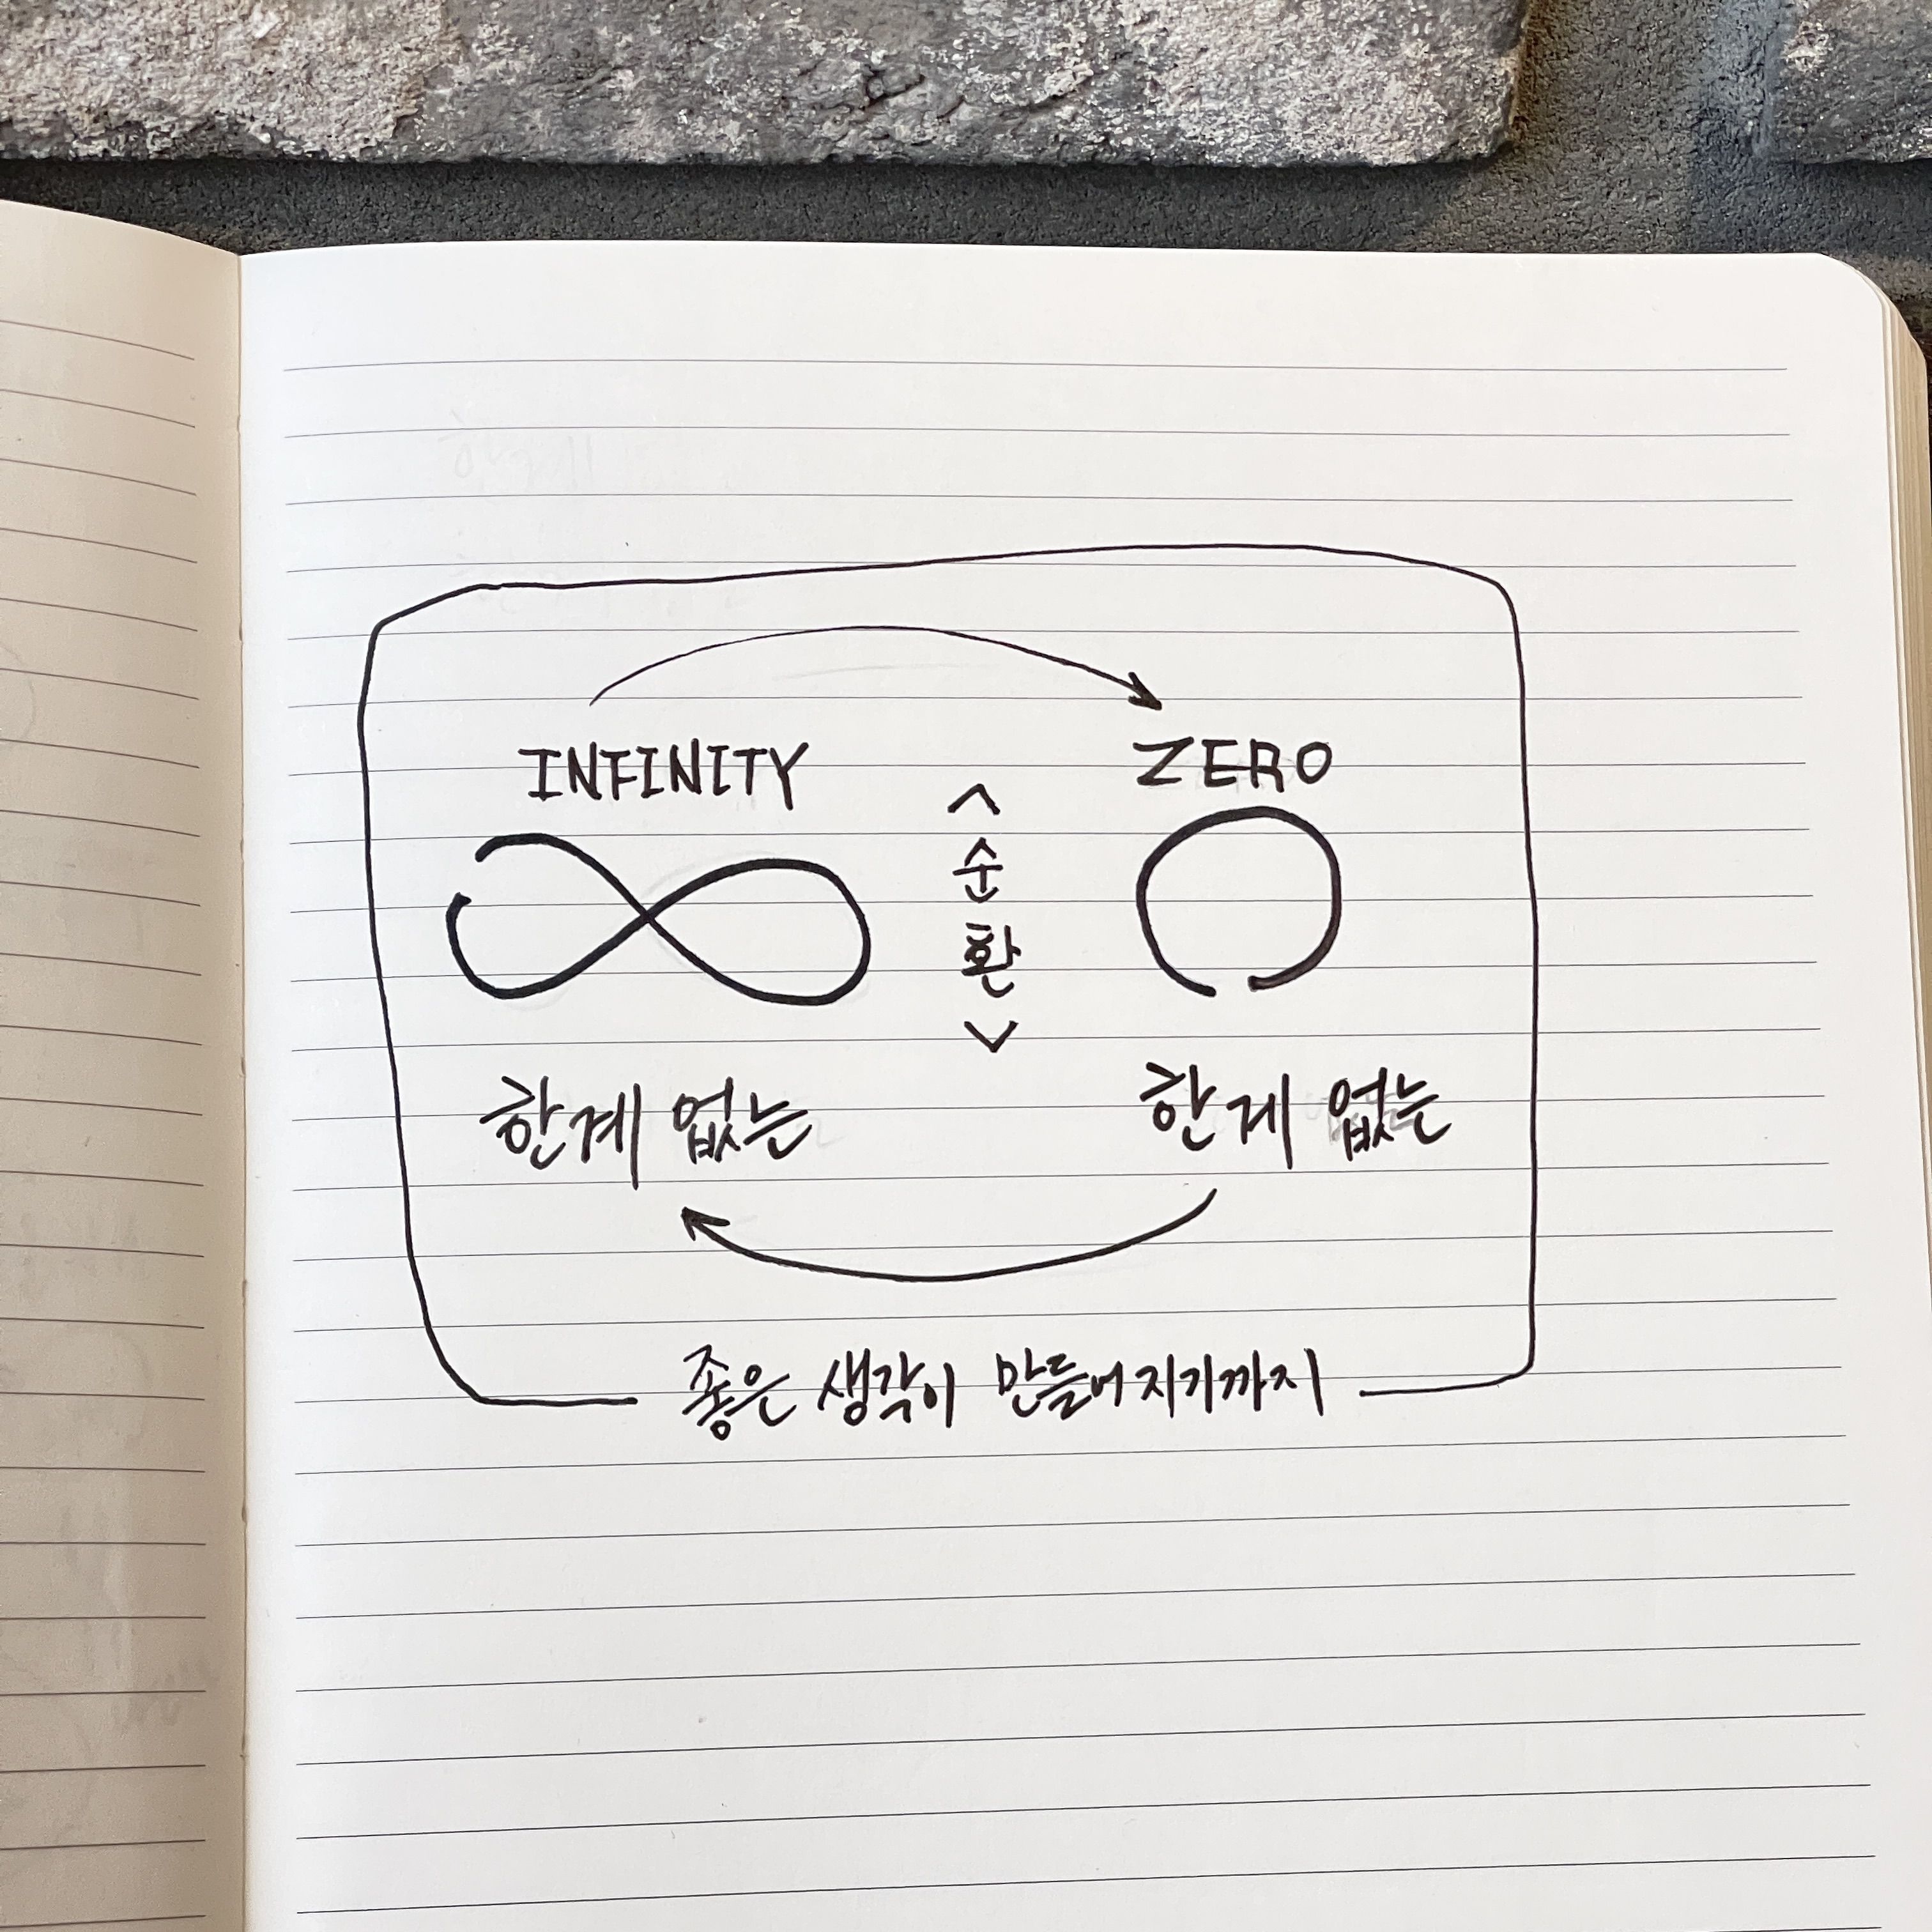 INFINITY
ZERO
<순환>
한계 없는
한계 없는
좋은 생각이 만들어지기까지